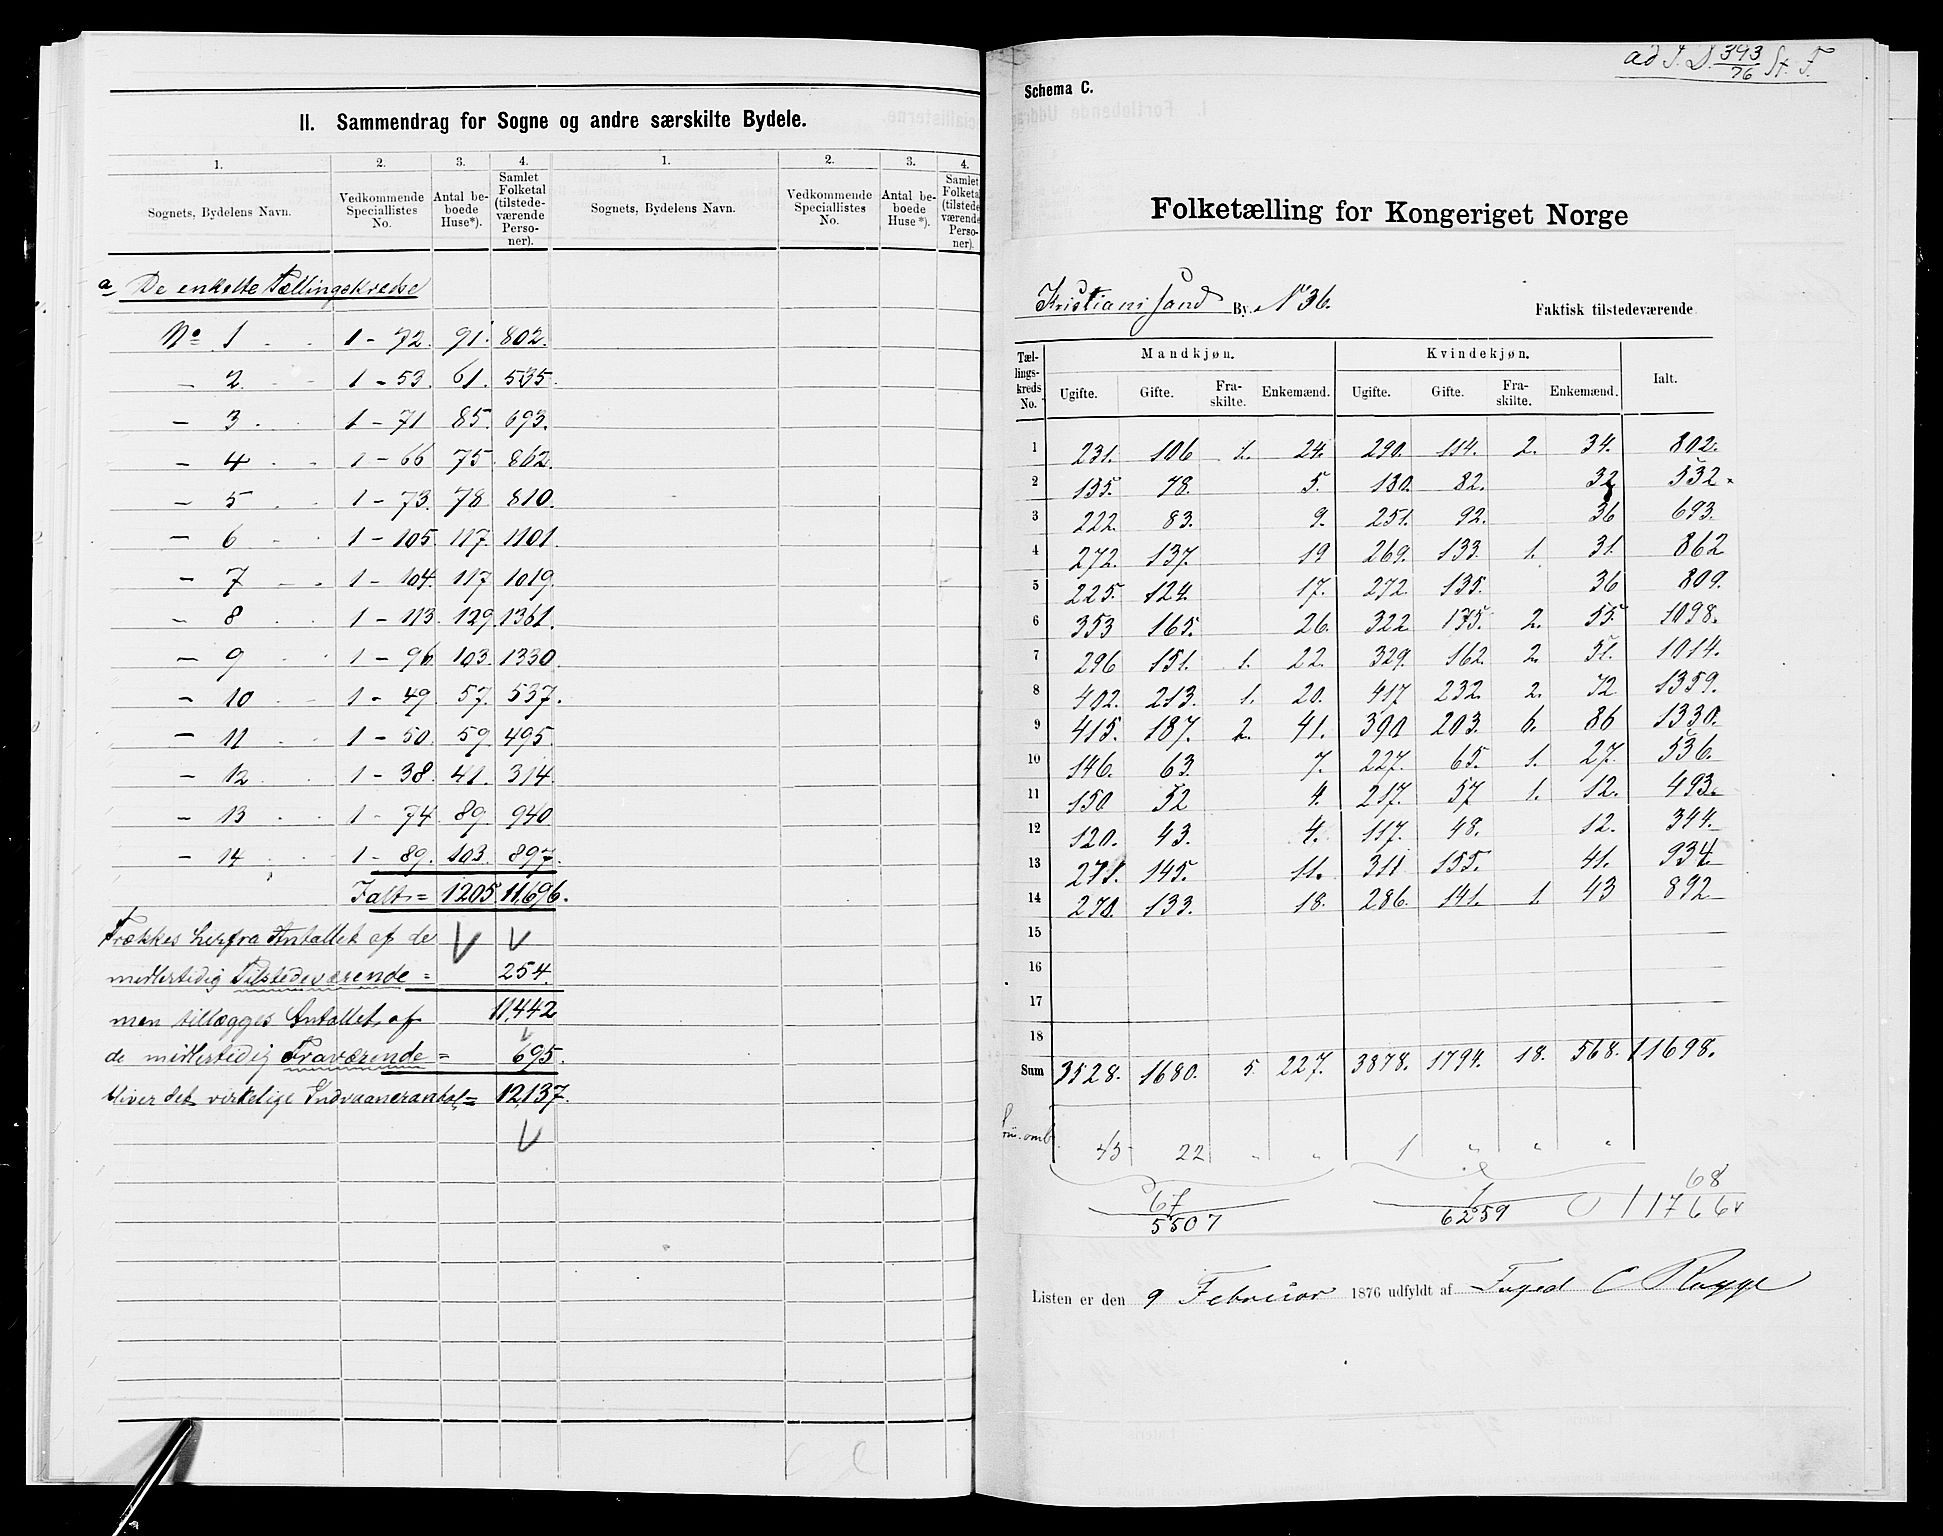 II. Sammendrag for Sogne og andre særskilte Bydele.
1. 2. 3. 4. 1. 2. 3. 4.
Sognets, Bydelens Navn. Vedkommende Speciallistes No. Antal beboede Huse*). Samlet Folketal (tilstedeværende Personer). Sognets, Bydelens Navn. Vedkommende Speciallistes No. Antal beboede Huse*). Samlet Folketal (tilstedeværende Personer).
a De enkelte Tællingskredse
No 1 1 - 72. 91. 802.
- 2. 1 - 53. 61. 535.
- 3. 1 - 71 85. 693.
- 4 1 - 66 75. 862.
- 5 1 - 73. 78. 810.
- 6 1 - 105. 117. 1101.
- 7 1 - 104. 117 1019.
- 8 1 - 113. 129. 1361.
- 9 1 - 96. 103. 1330.
- 10 1 - 49. 57. 537.
- 11 1 - 50. 59. 495.
- 12 1 - 38. 41. 314.
- 13 1 - 74 89. 940.
- 14 1 - 89. 103. 897.
Ialt = 1205. 11,696.
Trækkes herfra Antallet af de
midlertidig Tilstedeværende = 254.
men tillægges Antallet af 11,442
de midlertidig Fraværende = 695.
bliver det virkelige Indvaanerantal = 12,137.
ad J. D. 393/76 St. F.
Schema C.
Folketælling for Kongeriget Norge
Kristianssand By. No 36. Faktisk tilstedeværende
Tællingskreds No. Mandkjøn. Kvindekjøn. Ialt.
Ugifte. Gifte. Fraskilte. Enkemænd. Ugifte. Gifte. Fraskilte. Enkemænd.
1 231. 106 1. 24. 290. 114. 2. 34. 802.
2 135. 78. 5. 180. 82. 32 532
3 222. 83. 9. 251. 92. 36 693.
4 272. 137. 19 269. 133. 1. 31. 862
5 225. 124. 17. 272. 135. 36 809.
6 353 165. 26. 322 175. 2. 55. 1098.
7 296 151. 1. 22. 329. 162. 2. 51. 1014.
8 402. 213. 1. 20. 417 232. 2. 72. 1359.
9 415. 187. 2. 41. 390 203. 6. 86 1330.
10 146. 63. 7. 227. 65. 1. 27. 536.
11 150 52 4. 217. 57 1. 12. 493.
12 120. 43. 4. 117. 48. 12. 344.
13 271. 145. 11. 311 155. 41. 934
14 270. 133. 18. 286. 141. 1. 43 892
15
16
17
18
Sum 3528. 1680. 5 227. 3878. 1794. 18. 568. 11698.
45 22 " " 1 " " "
67 1 68
5507 6259 11766
Listen er den 9 Februar 1876 udfyldt af Foged C Rogge